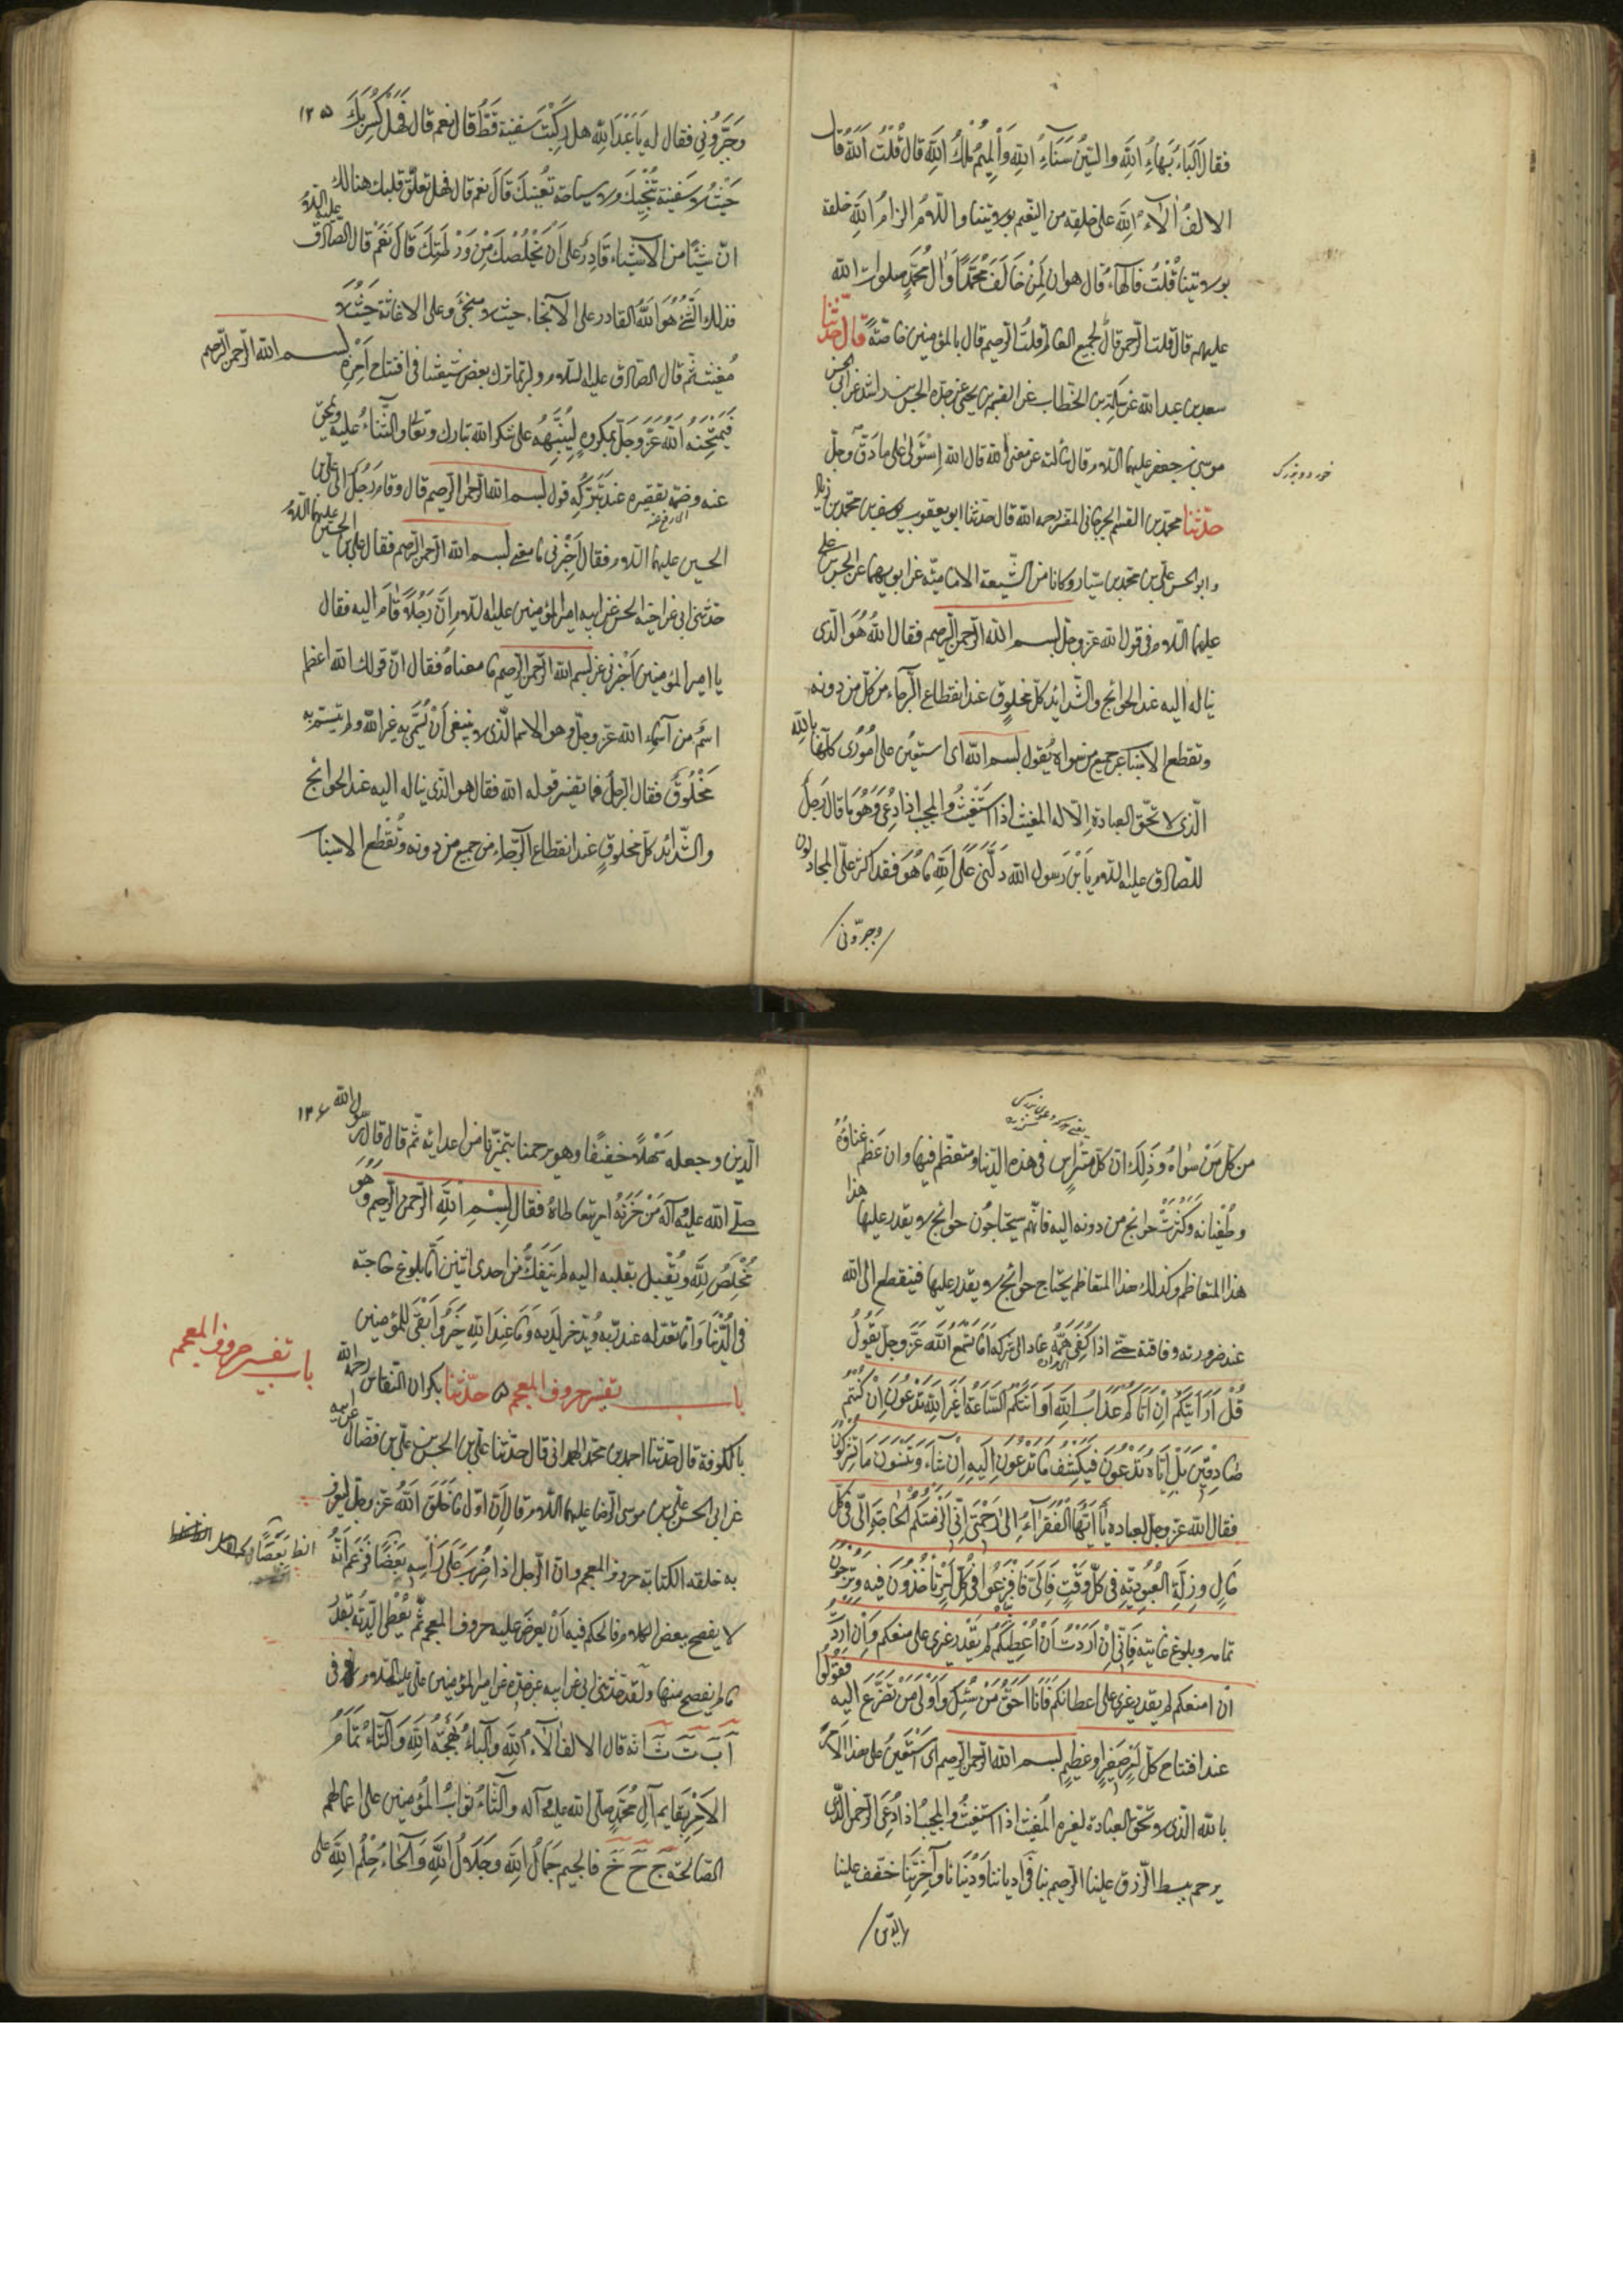 فقال الباء بهاء الله والسين سناء الله والميم ملك الله قال قلت الله قال
الالف آلاء الله على خلقه من النعيم بولايتنا واللام الزام الله خلقه
بولايتنا قلت فالهاء قال هوان لمن خالف محمدا وال محمد صلوات الله
عليهم قال قلت الرحمن قال بجميع العالم قلت الرحيم قال بالمؤمنين خاصة قال حدثنا
سعد بن عبد الله عن سلمة بن الخطاب عن القسم بن يحيى عن جده الحسن بن راشد عن ابي الحسن
موسى بن جعفر عليهما السلام قال سالته عن معنى الله قال الله استولى على ما دق وجل
خورد و بزرك
حدثنا محمد بن القسم الجرجاني المفسر رحمه الله قال حدثنا ابو يعقوب يوسف بن محمد بن زياد
وابو الحسن علي بن محمد بن سيار وكانا من الشيعة الامامية عن ابويهما عن الحسن بن علي
عليهما السلام في قول الله عز وجل بسم الله الرحمن الرحيم فقال الله هو الذي
يتاله اليه عند الحوائج والشدائد كل مخلوق عند انقطاع الرجاء من كل من دونه
وتقطع الاسباب عن جميع من سواه يقول بسم الله اي استعين على اموري كلها بالله
الذي لا تحق العبادة الا له المغيث اذا استغيث والمجيب اذا دعي وهو ما قال رجل
للصادق عليه السلام يا بن رسول الله دلني على الله ما هو فقد اكثر علي المجادلون
وحيروني
وحيروني فقال له يا عبد الله هل ركبت سفينة قط قال نعم قال فهل كسر بك ١٢٥
حيث لا سفينة تنجيك ولا سباحة تغنيك قال نعم قال فهل تعلق قلبك هنالك
ان شيئا من الاشياء قادر على ان يخلصك من ورطتك قال نعم قال الصادق عليه السلام
فذلك الشئ هو الله القادر على الانجاء حيث لا منجي وعلى الاغاثة حيث لا
مغيث ثم قال الصادق عليه السلام ولربما ترك بعض شيعتنا في افتتاح امره بسم الله الرحمن الرحيم
فيمتحنه الله عز وجل بمكروه لينبهه على شكر الله تبارك وتعالى والثناء عليه ويمحق
عنه وصمة تقصيره عند تركه قول بسم الله الرحمن الرحيم قال وقام رجل الى علي بن
الحسين عليهما السلام فقال اخبرني ما معنى بسم الله الرحمن الرحيم فقال علي بن الحسين عليهما السلام
حدثني ابي عن اخيه الحسن عن ابيه امير المؤمنين عليه السلام ان رجلا قام اليه فقال
يا امير المؤمنين اخبرني عن بسم الله الرحمن الرحيم ما معناه فقال ان قولك الله اعظم
اسم من آسماء الله عز وجل وهو الاسم الذي لا ينبغي ان يسمى به غير الله ولم يتسم به
مخلوق فقال الرجل فما تفسير قوله الله فقال هو الذي يتاله اليه عند الحوائج
والشدائد كل مخلوق عند انقطاع الرجاء من جميع من دونه وتقطع الاسباب
من كل من سواه وذلك ان كل مترئس في هذه الدنيا ومتعظم فيها وان عظم غناؤه
وطغيانه وكثرت حوائج من دونه اليه فانهم سيحتاجون حوائج لا يقدر عليها هذا
هذا المتعاظم وكذلك هذا المتعاظم يحتاج حوائج لا يقدر عليها فينقطع الى الله
عند ضرورته وفاقته حتى اذا كفي همه عاد الى شركه اما تسمع الله عز وجل يقول
قل ارايتكم ان اتاكم عذاب الله او اتتكم الساعة اغير الله تدعون ان كنتم
صادقين بل اياه تدعون فيكشف ما تدعون اليه ان شاء وتنسون ما تشركون
فقال الله عز وجل لعباده يا ايها الفقراء الى رحمتي اني الزمتكم الحاجة الي في كل
حال وذلة العبودية في كل وقت فالي فافزعوا في كل امر تاخذون فيه وترجون
تمامه وبلوغ غايته فاني ان اردت ان اعطيكم لم يقدر غيري على منعكم وان اردت
ان امنعكم لم يقدر غيري على اعطائكم فانا احق من سئل واولى من تضرع اليه فقولوا
عند افتتاح كل امر صغير او عظيم بسم الله الرحمن الرحيم اي استعين على هذا الامر
بالله الذي لا تحق العبادة لغيره المغيث اذا استغيث والمجيب اذا دعي الرحمن الذي
يرحم ببسط الرزق علينا الرحيم بنا في ادياننا ودنيانا وآخرتنا خفف علينا
الدين
الدين وجعله سهلا خفيفا وهو يرحمنا بتميزنا من اعدائه ثم قال قال رسول الله ١٢٦
صلى الله عليه وآله من حزنه امر تعاطاه فقال بسم الله الرحمن الرحيم وهو
مخلص لله ويقبل بقلبه اليه لم ينفك من احدى اثنتين اما بلوغ حاجته
في الدنيا واما تعد له عند ربه ويدخر لديه وما عند الله خير وابقى للمؤمنين
باب تفسير حروف المعجم
باب تفسير حروف المعجم حدثنا بكران النقاش رحمه الله
بالكوفة قال حدثنا احمد بن محمد الهمداني قال حدثنا علي بن الحسن بن علي بن فضال عن ابيه
عن ابي الحسن علي بن موسى الرضا عليهما السلام قال ان اول ما خلق الله عز وجل ليعرف
به خلقه الكتابة حروف المعجم وان الرجل اذا ضرب على راسه بعصا فزعم انه
لا يفصح ببعض الكلام فالحكم فيه ان يعرض عليه حروف المعجم ثم يعطى الدية بقدر
ما لم يفصح منها ولقد حدثني ابي عن ابيه عن جده عن امير المؤمنين علي عليه السلام في
ا ب ت ث انه قال الالف آلاء الله والباء بهجة الله والتاء تمام
الامر بقايم آل محمد صلى الله عليه وآله والثاء ثواب المؤمنين على اعمالهم
الصالحة ج ح خ فالجيم جمال الله وجلال الله والحاء حلم الله على